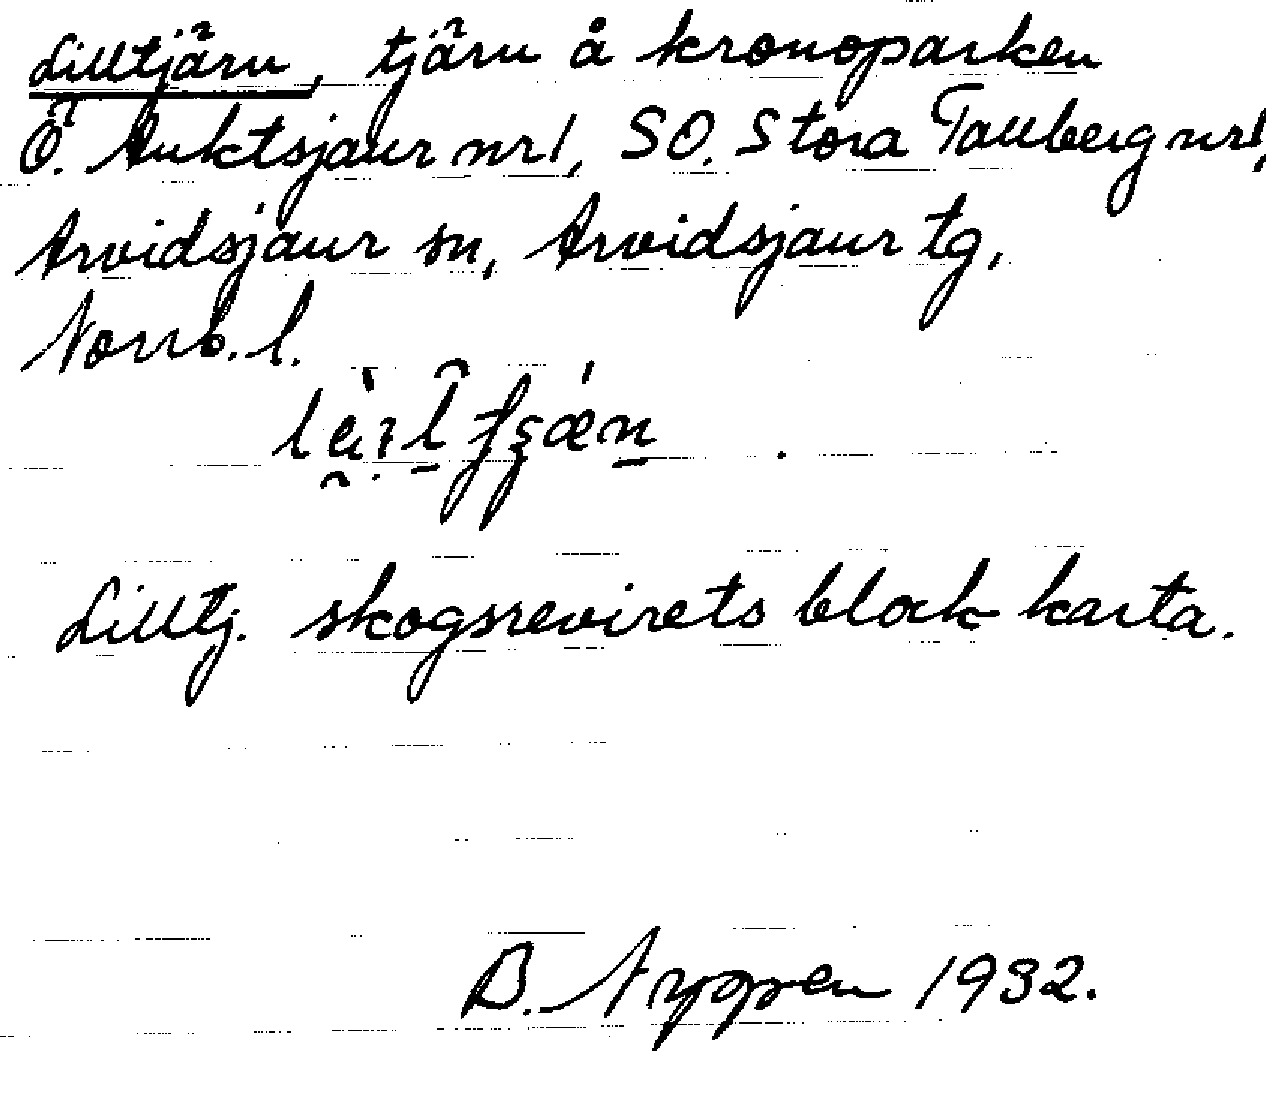 Lilltjärn, tjärn å kronoparken
Ö. Auktsjaur nr 1, SO. Stora Tallberg nr 1,
Arvidsjaur sn, Arvidsjaur tg,
Norrb. l.
Lilltj. skogsrevirets block karta.
B. Nyppen 1932.